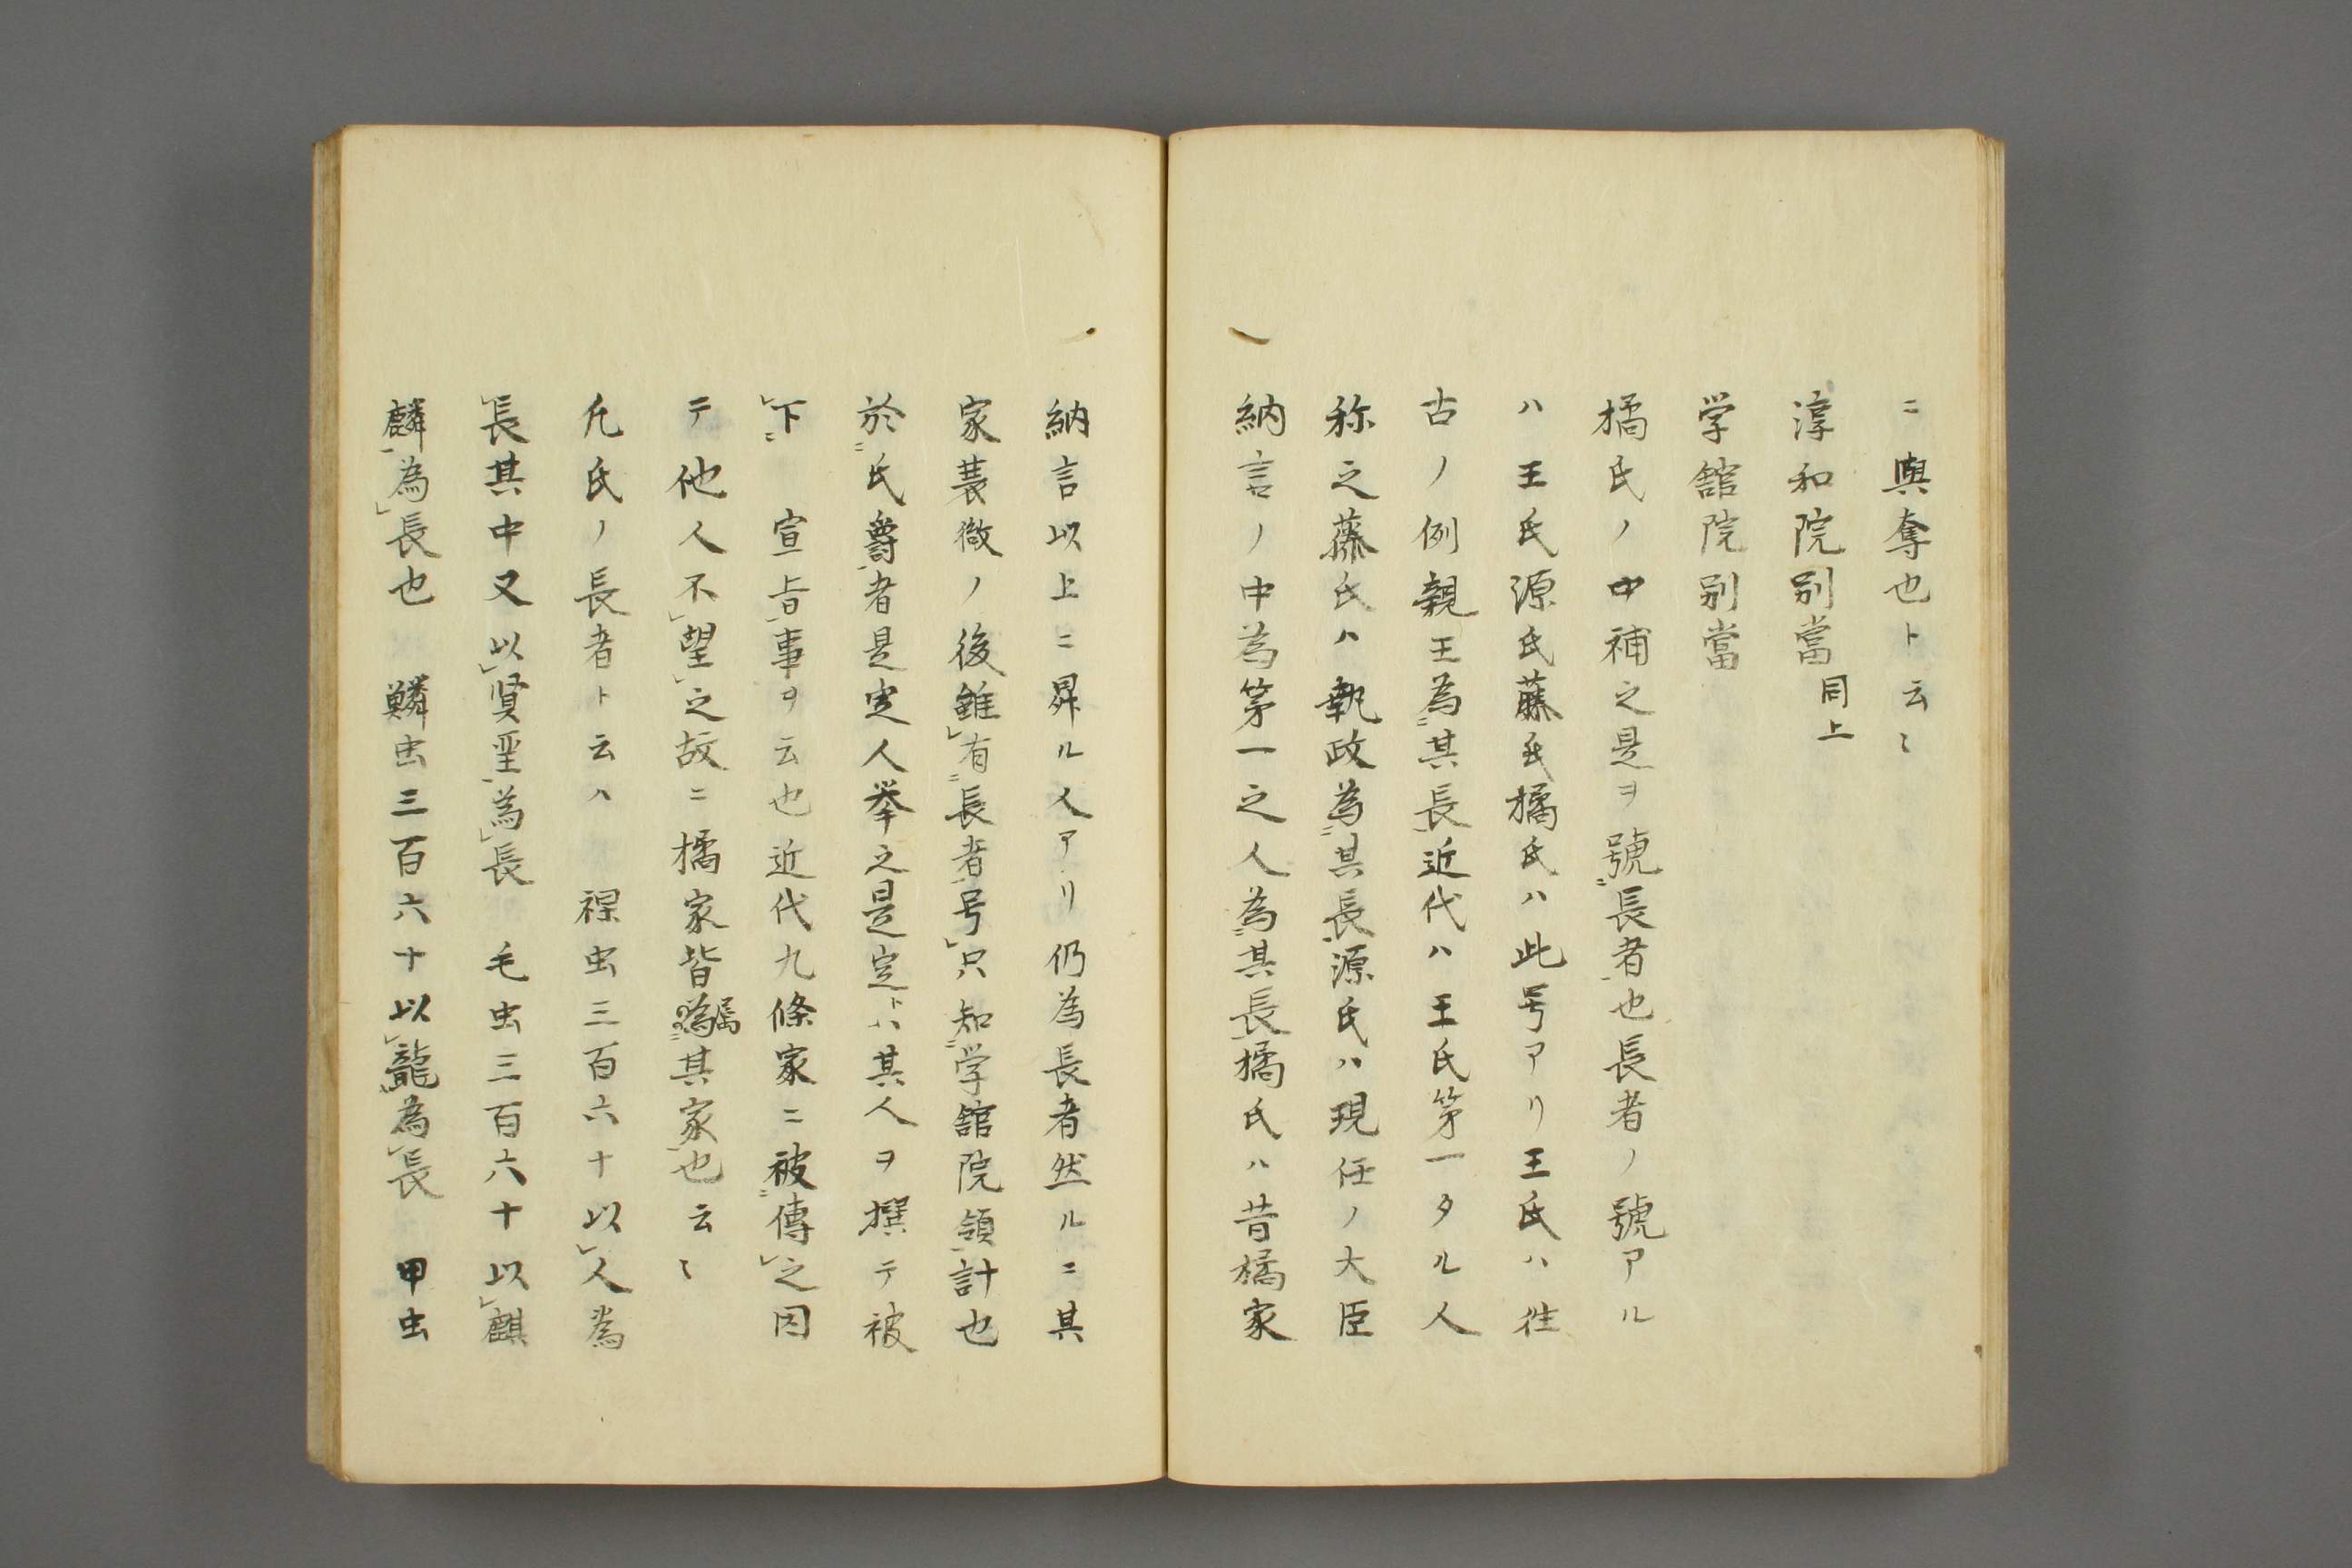 ニ與奪也ト云〻
淳和院別當同上
学舘院別當
橘氏ノ中補之是ヲ號長者也長者ノ號アル
ハ王氏源氏藤氏橘氏ハ此号アリ王氏ハ徃
古ノ例親王為其長近代ハ王氏第一タル人
称之藤氏ハ執政為其長源氏ハ現任ノ大臣
納言ノ中為第一之人為其長橘氏ハ昔橘家
納言以上ニ昇ル人アリ仍為長者然ルニ其
家蓑微ノ後雖有長者号只知学舘院領計也
於氏爵者是定人挙之是定トハ其人ヲ撰テ被
下 宣旨事ヲ云也近代九條家ニ被傳之因
テ他人不望之故ニ橘家皆為属其家也云〻
凡氏ノ長者ト云ハ 裸虫三百六十以人為
長其中又以賢聖為長 毛虫三百六十以麒
麟為長也 鱗虫三百六十以龍為長 甲虫